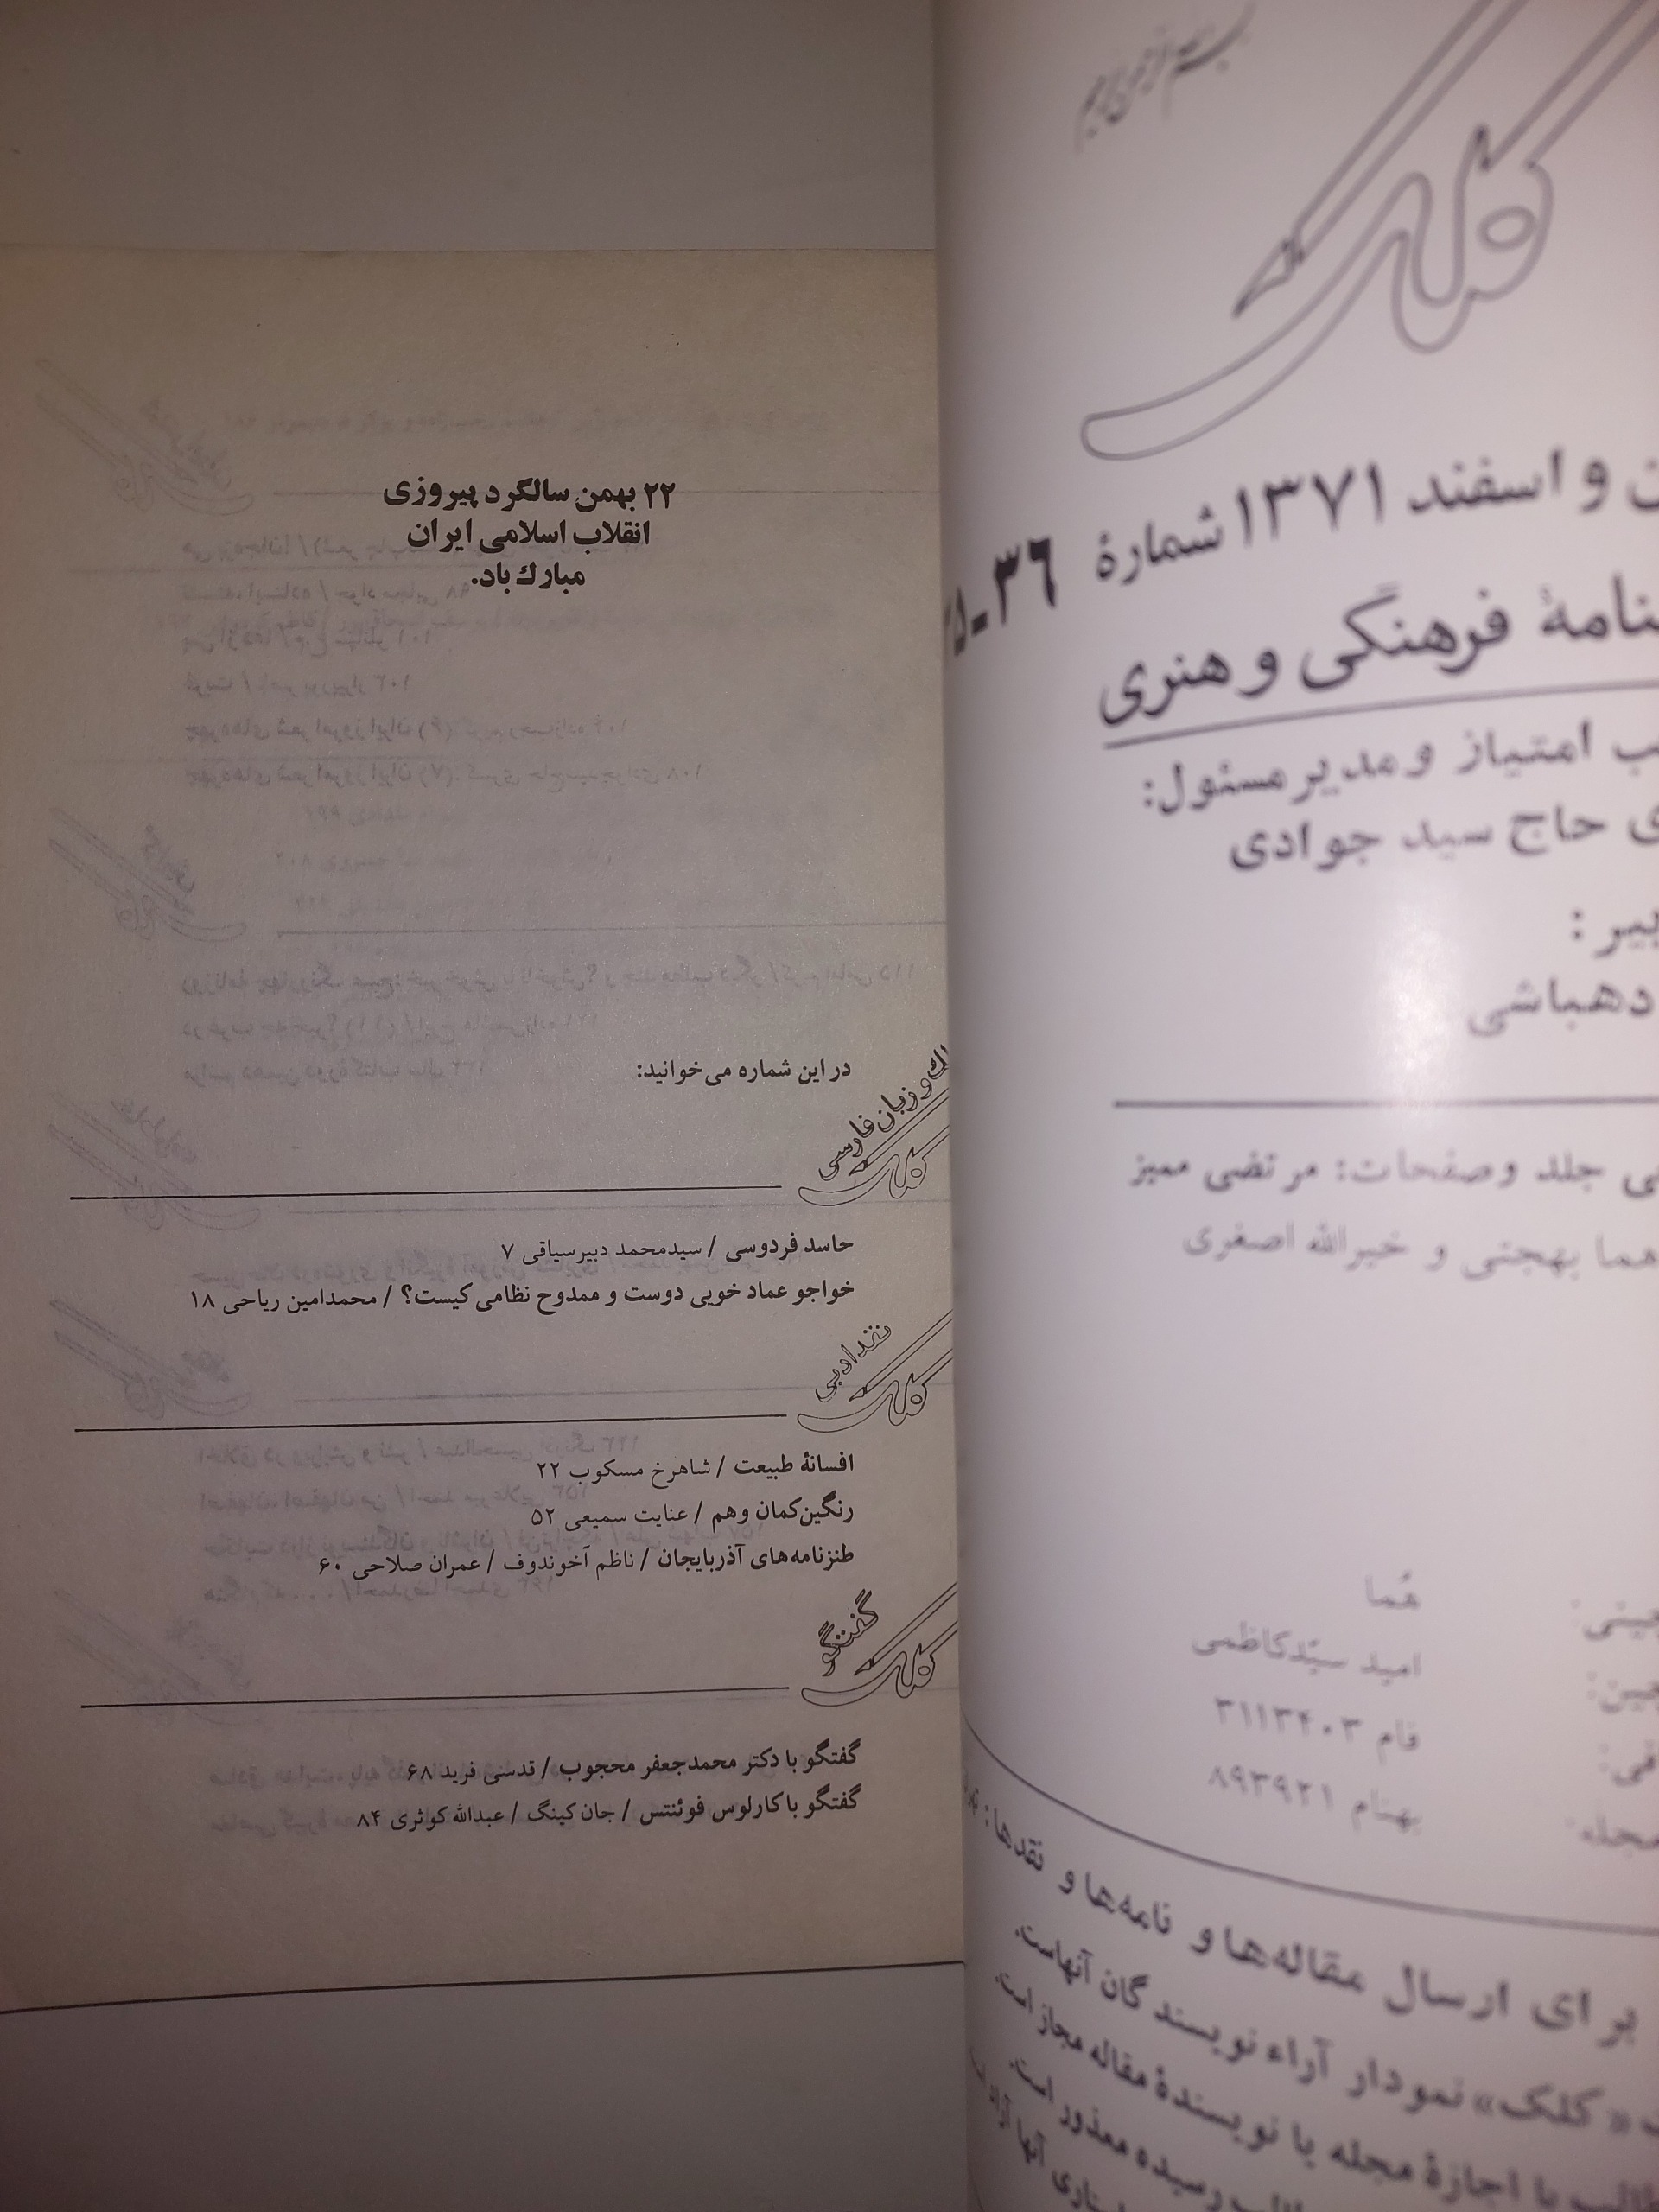 ۲۲ بهمن سالگرد پیروزی
انقلاب اسلامی ایران
مبارك باد.
در این شماره می‌خوانید:
و زبان فارسی
کلک
حاسد فردوسی / سیدمحمد دبیرسیاقی ۷
خواجو عماد خویی دوست و ممدوح نظامی کیست؟ / محمدامین ریاحی ۱۸
نقد ادبی
کلک
افسانهٔ طبیعت / شاهرخ مسکوب ۲۲
رنگین‌کمان وهم / عنایت سمیعی ۵۲
طنزنامه‌های آذربایجان / ناظم آخوندوف / عمران صلاحی ۶۰
گفتگو
کلک
گفتگو با دکتر محمدجعفر محجوب / قدسی فرید ۶۸
گفتگو با کارلوس فوئنتس / جان کینگ / عبدالله کوثری ۸۴
بسم الله الرحمن الرحیم
کلک
و اسفند ۱۳۷۱ شمارهٔ ۳۶-
فرهنگی و هنری
امتیاز و مدیر مسئول:
حاج سید جوادی
دهباشی
جلد و صفحات: مرتضی ممیز
هما بهجنی و خیرالله اصغری
هُما
امید سیّدکاظمی
فام ۳۱۱۳۴۰۳
بهنام ۸۹۳۹۲۱
برای ارسال مقاله‌ها و نامه‌ها و نقدها:
«کلک» نمودار آراء نویسندگان آنهاست.
با اجازهٔ مجله یا نویسندهٔ مقاله مجاز است.
رسیده معذور است.
آنها آزاد